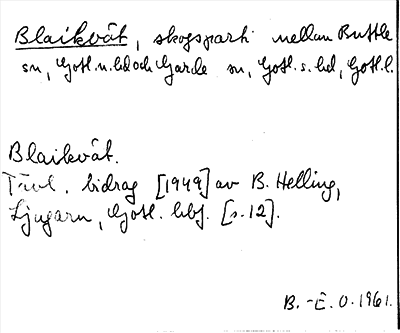 Blaikvät, skogsparti mellan Buttle
sn, Gotl. n. hd och Garde sn, Gotl. s. hd, Gotl. l.
Blaikvät.
Tävl. bidrag [1949] av B. Helling,
Ljugarn, Gotl. hbf. [s. 12].
B.-E. O. 1961.